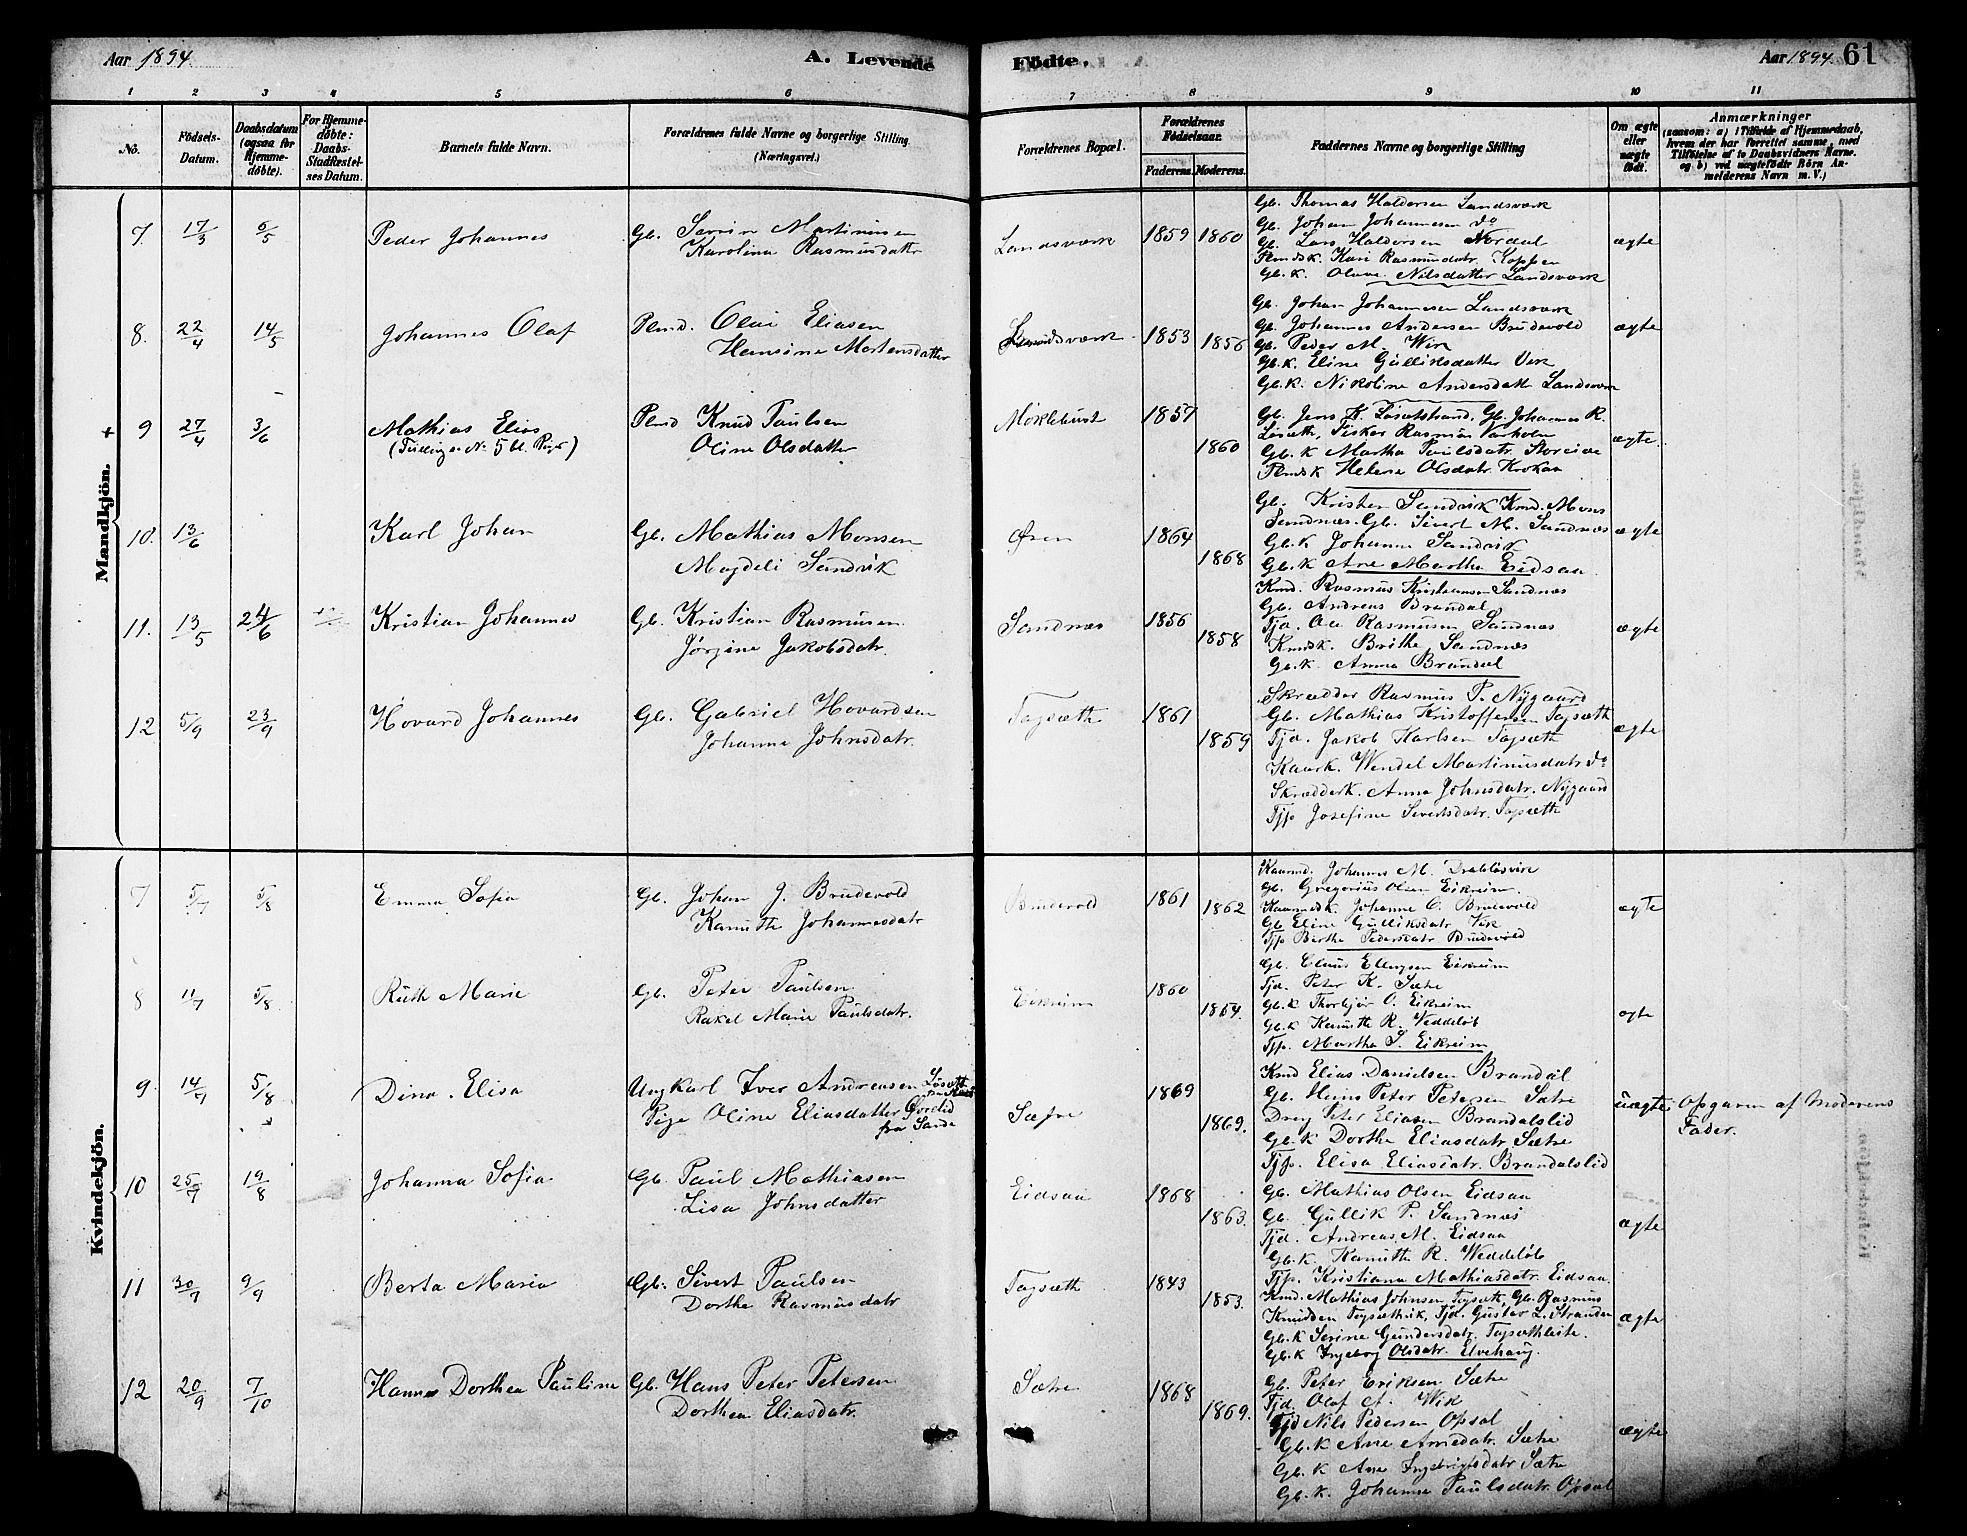 Aar 1894.
A. Levende
Födte.
Aar 1894. 61
1 2 3 4 5 6 7 8 9 10 11
No.
Födsels-Datum.
Daabsdatum (ogsaa for Hjemmedöbte).
For Hjemmedöbte: Daabs-Stadfæstelses Datum.
Barnets fulde Navn.
Forældrenes fulde Navne og borgerlige Stilling.
(Næringsvei.)
Forældrenes Bopæl.
Forældrenes Födselsaar.
Faderens. Moderens.
Faddernes Navne og borgerlige Stilling
Om ægte eller uægte födt.
Anmærkninger
(saasom: a) i Tilfælde af Hjemmedaab,
hvem der har forrettet samme, med
Tilföielse af to Daabsvidners Navne.
og b) ved uægtefödte Börn Anmelderens Navn m. V.)
Mandkjön.
7. 17/3 6/5 Peder Johannes
Gb. Severin Martinusen
Karolina Rasmusdatter
Landsværk 1859 1860
Gb. Thomas Haldorsen Landsværk
Gb. Johan Johannesen do
Gb. Lars Haldorsen Nordal
Plmdsk. Kari Rasmusdatr. Koppen
Gb.k. Olave Nilsdatter Landsværk
ægte
8. 22/4 14/5 Johannes Olaf
Plmd. Olai Eliasen
Hansine Mortensdatter
Landsværk 1853 1856
Gb. Johan Johannesen Landsværk
Gb. Johannes Andersen Brudevold
Gb. Peder M. Wik
Gb.k. Eline Gulliksdatter Vik
Gb.k. Nikoline Andersdatter Landsværk
ægte
+ 9 27/4 3/6 Mathias Elias
(Tvilling og No 5 bl. Piger)
Plmd Knud Paulsen
Oline Olsdatter
Möklebust 1857 1860
Gb. Jens K. Løsetstrand, Gb. Johannes R.
Løseth, Fisker Rasmus Varholm
Gb.k Martha Paulsdatr. Storeide
Plmdsk Helene Olsdatr. Krokaa
ægte.
10. 13/6 Karl Johan
Gb. Mathias Monsen
Magdeli Sandvik
Øren 1864 1868
Gb. Kristen Sandvik Kmd. Mons
Sandnæs. Gb. Sivert M. Sandnæs
Gb.k Johanne Sandvik
Gb.k Ane Martha Eidsaa
ægte
11. 13/5 24/6 Kristian Johannes
Gb. Kristian Rasmusen
Jörgine Jakobsdatr.
Sandnæs 1856 1858
Kmd. Rasmus Kristiansen Sandnæs
Gb. Andreas Brandal
Tjd. Ole Rasmusen Sandnæs
Kmdsk. Brithe Sandnæs
Gb.k. Anna Brandal
ægte
12 5/9 23/9 Hovard Johannes
Gb. Gabriel Hovardsen
Johanne Johnsdatr.
Tagsæth 1861 1859
Skrædder Rasmus P. Nygaard
Gb. Mathias Kristoffersen Tagsæth
Tjd. Jakob Karlsen Tagsæth
Kaark. Wendel Martinusdatr. do
Skrædderk. Anna Johnsdatr. Nygaard
Tjp. Josefine Sivertsdatr. Tagsæth
ægte
Kvindekjön.
7 5/7 5/8 Emma Sofia
Gb. Johan J. Brudevold
Kanutte Johannesdatr
Brudevold 1861 1862
Kaarmd. Johannes M. Drabløsvik
Gb. Gregorius Olsen Eikreim.
Kaarmdsk. Johanne O. Brudevold
Gb Eline Gulliksdatr Vik
Tjp. Berthe Pedersdatr Brudevold
ægte
8 11/7 5/8 Ruth Marie
Gb. Peter Paulsen
Rakel Marie Paulsdatr.
Eikreim 1860 1864.
Gb. Claus Ellingsen Eikreim
Tjd. Peter K. Sætre
Gb.k Thorbjør O. Eikreim
Gb.k Kanutte R. Weddeløb
Tjp. Martha S. Eikreim
ægte
9. 14/7 5/8 Dina Elisa
Ungkarl Iver Andreasen Løseth
Pige Oline Eliasdatter Gørelid
fra Sande
Sætre 1869 1869.
Kmd Elias Danielsen Brandal
Gb. Hans Peter Petersen Sætre
Dreng Peter Eliasen Brandalslid
Gb.k Dorthe Eliasdatr Sætre
Tjp. Elisa Eliasdatr. Brandalslid
uægte Opgaven af Moderens
Fader.
10 25/7 19/8 Johanna Sofia
Gb. Paul Mathiasen
Lisa Johnsdatter
Eidsaa 1868 1863.
Gb. Mathias Olsen Eidsaa
Gb. Gullik P. Sandnæs
Tjd. Andreas M. Eidsaa
Gb.k. Kanutte R. Weddeløb
Tjp. Kristiana Mathiasdatr. Eidsaa
ægte
11 30/7 9/9 Berta Maria
Gb. Sivert Paulsen
Dorthe Rasmusdatr
Tagsæth 1843 1853.
Kmd. Mathias Johnsen Tagsæth, Gb. Rasmus
Knudsen Tagsæthvik, Tjd. Gustav L. Stranden
Gb.k Serine Gundersdatr. Tagsæthleite.
Gb.k Ingeborg Olsdatr. Elvehaug.
ægte
12 20/9 7/10 Hanna Dorthea Pauline
Gb. Hans Peter Petersen
Dorthea Eliasdatr.
Sætre 1868 1869.
Gb. Peter Eriksen Sætre
Tjd. Olaf A. Wik
Tjd Nils Pedersen Opsal
Gb.k Ane Arnedatr. Sætre
Gb.k Ane Ingebrigtsdatr Sætre
Gb.k. Johanne Paulsdatr. Opsal
ægte